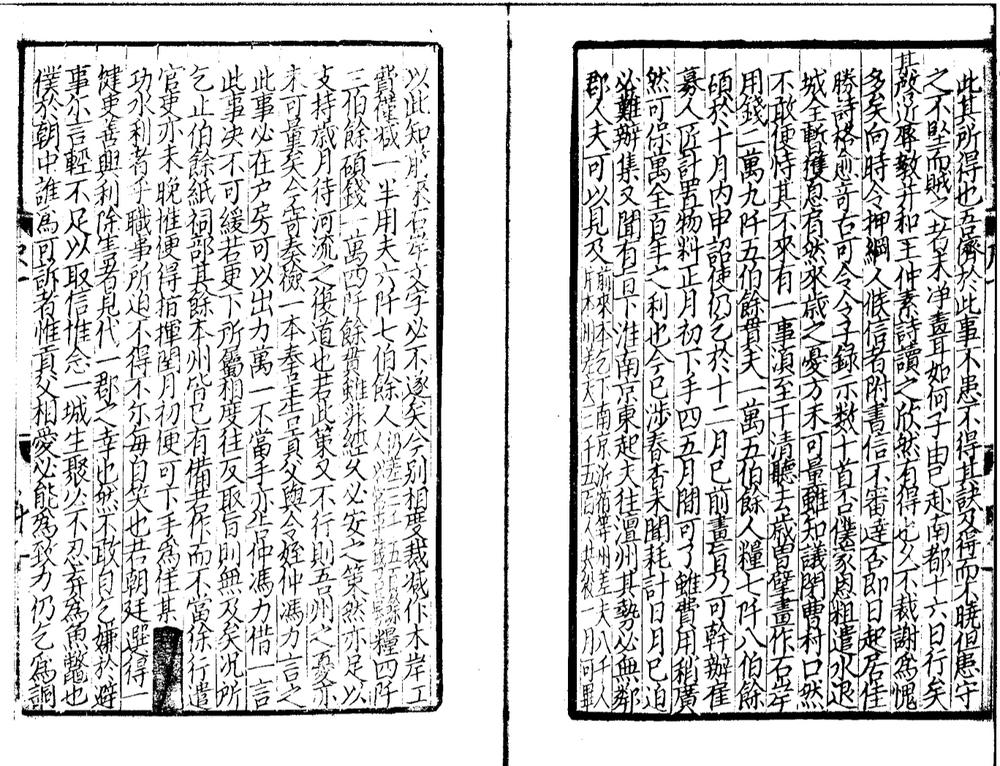 此其所得也吾儕於此事不患不得其訣及得而不曉但患守
之不堅而賊之者未淨盡耳如何子由已赴南都十六日行矣
其啓近辱教并和王仲素詩讀之欣然有得也久不裁謝為愧
多矣向時令押綱人候信者附書信不審達否即日起居佳
勝詩格愈奇古可令令子錄示数十首否僕家恩粗遣水退
城全暫獲息肩然來歲之憂方未可量雖知議閉曹村口然
不敢便恃其不來有一事湏至干清聽去歲曽擘畫作石岸
用錢二萬九阡五伯餘貫夫一萬五伯餘人糧七阡八伯餘
碩於十月内申詔使仍乞於十二月已前畫旨乃可幹辦雇
募人匠計置物料正月初下手四五月間可了雖費用稍廣
然可保萬全百年之利也今已涉春杳未聞耗計日月已迫
必難辦集又聞有旨下淮南京東起夫往澶州其勢必無鄰
郡人夫可以見及前來本乞下南京沂宿等州差夫八千人
以此知前來石岸文字必不遂矣今別相度裁減作木岸工
費權減一半用夫六阡七伯餘人糧四阡
三伯餘碩錢一萬四阡餘貫雖非經久必安之策然亦足以
支持歲月待河流之復道也若此策又不行則吾州之憂亦
未可量矣今寄奏檢一本奉呈告貞父與令姪仲馮力言之
此事必在户房可以出力萬一不當手亦告仲馮力借一言
此事决不可緩若更下所屬相度往反取旨則無及矣况所
乞止伯餘紙祠部其餘本州皆已有備若作而不當徐行遣
官吏亦未晚惟便得指揮閏月初便可下手為佳其
功水利者乎職事所迫不得不尔毎自笑也若朝廷選得一
健吏善興利除害者見代一郡之幸也然不敢自乞嫌於避
事尔言輕不足以取信惟念一城生聚必不忍弃為魚鼈也
僕於朝中誰為可訴者惟貞父相愛必能為致力仍乞為調